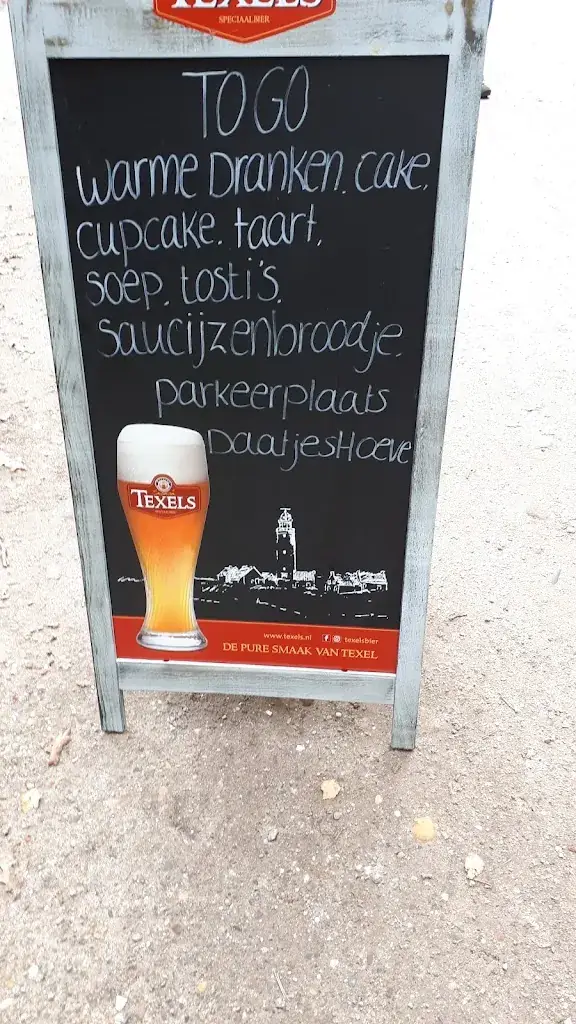 TEXELS
SPECIAALBIER
TO GO
warme Dranken. cake.
cupcake. taart.
soep. tosti's.
saucijzenbroodje.
parkeerplaats
DaatjesHoeve
TEXELS
www.texels.nl texelsbier
DE PURE SMAAK VAN TEXEL